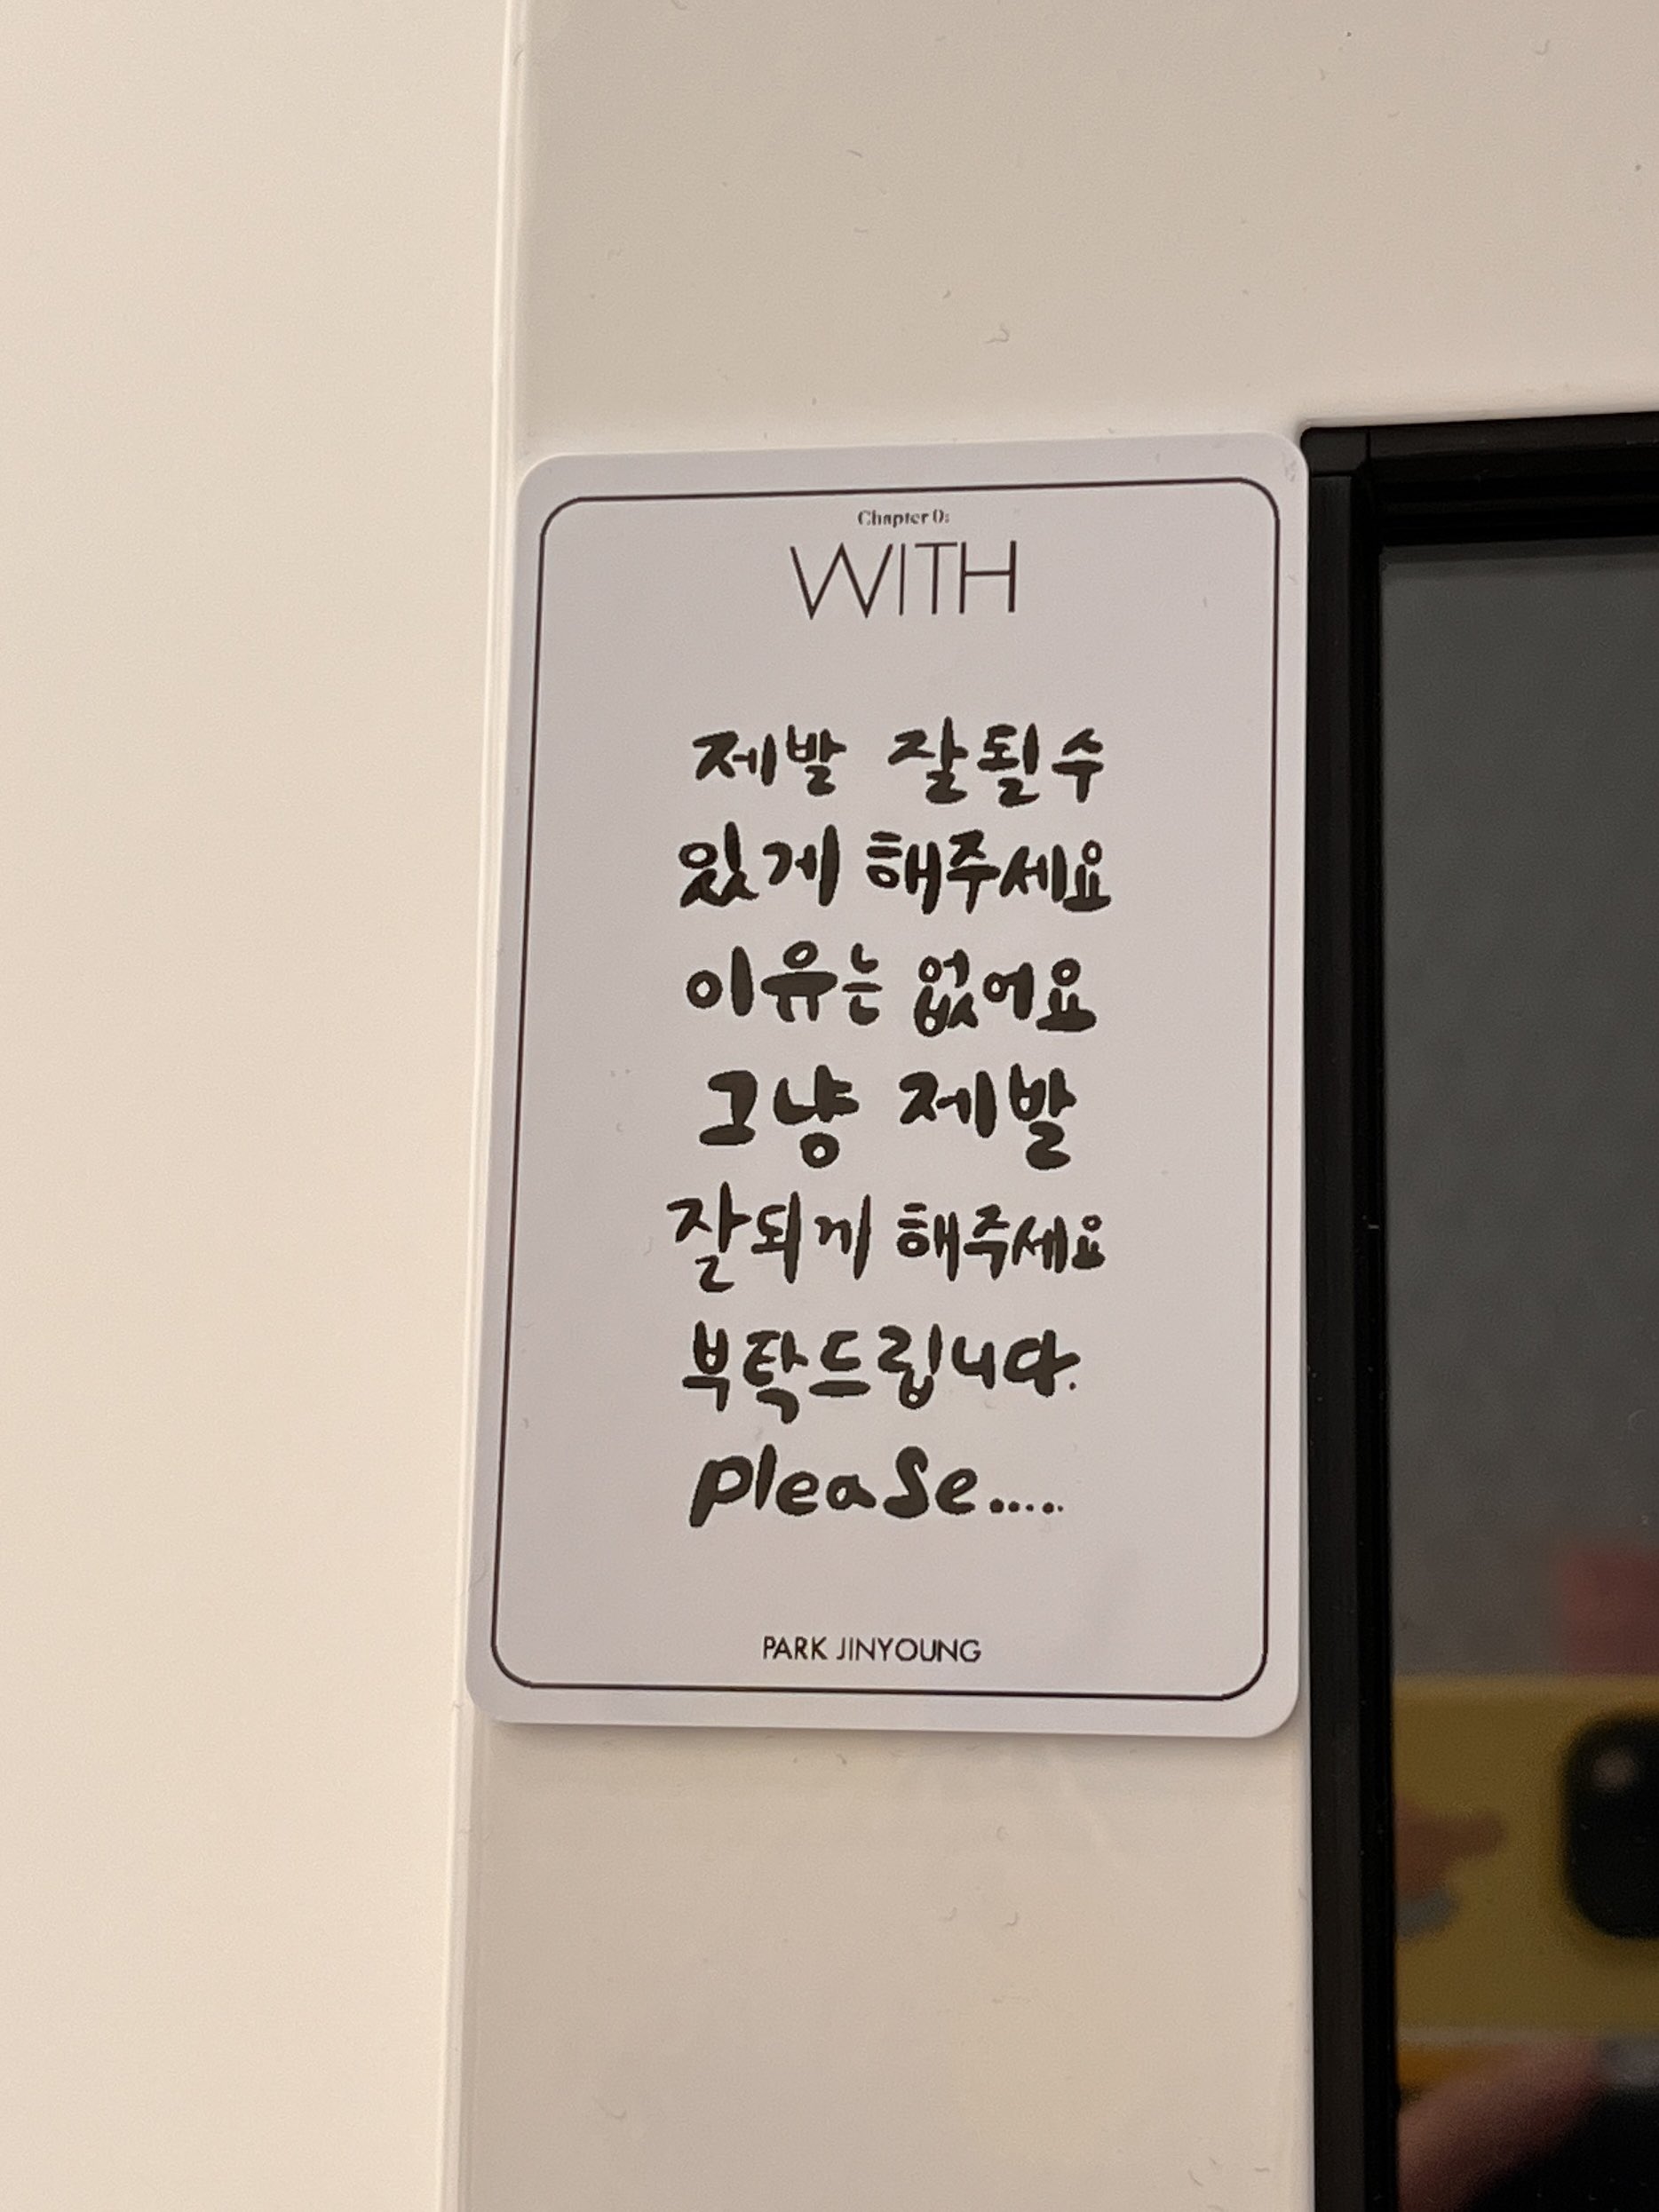 Chapter 0:
WITH
제발 잘될수
있게 해주세요
이유는 없어요
그냥 제발
잘되게 해주세요
부탁드립니다.
please.....
PARK JINYOUNG